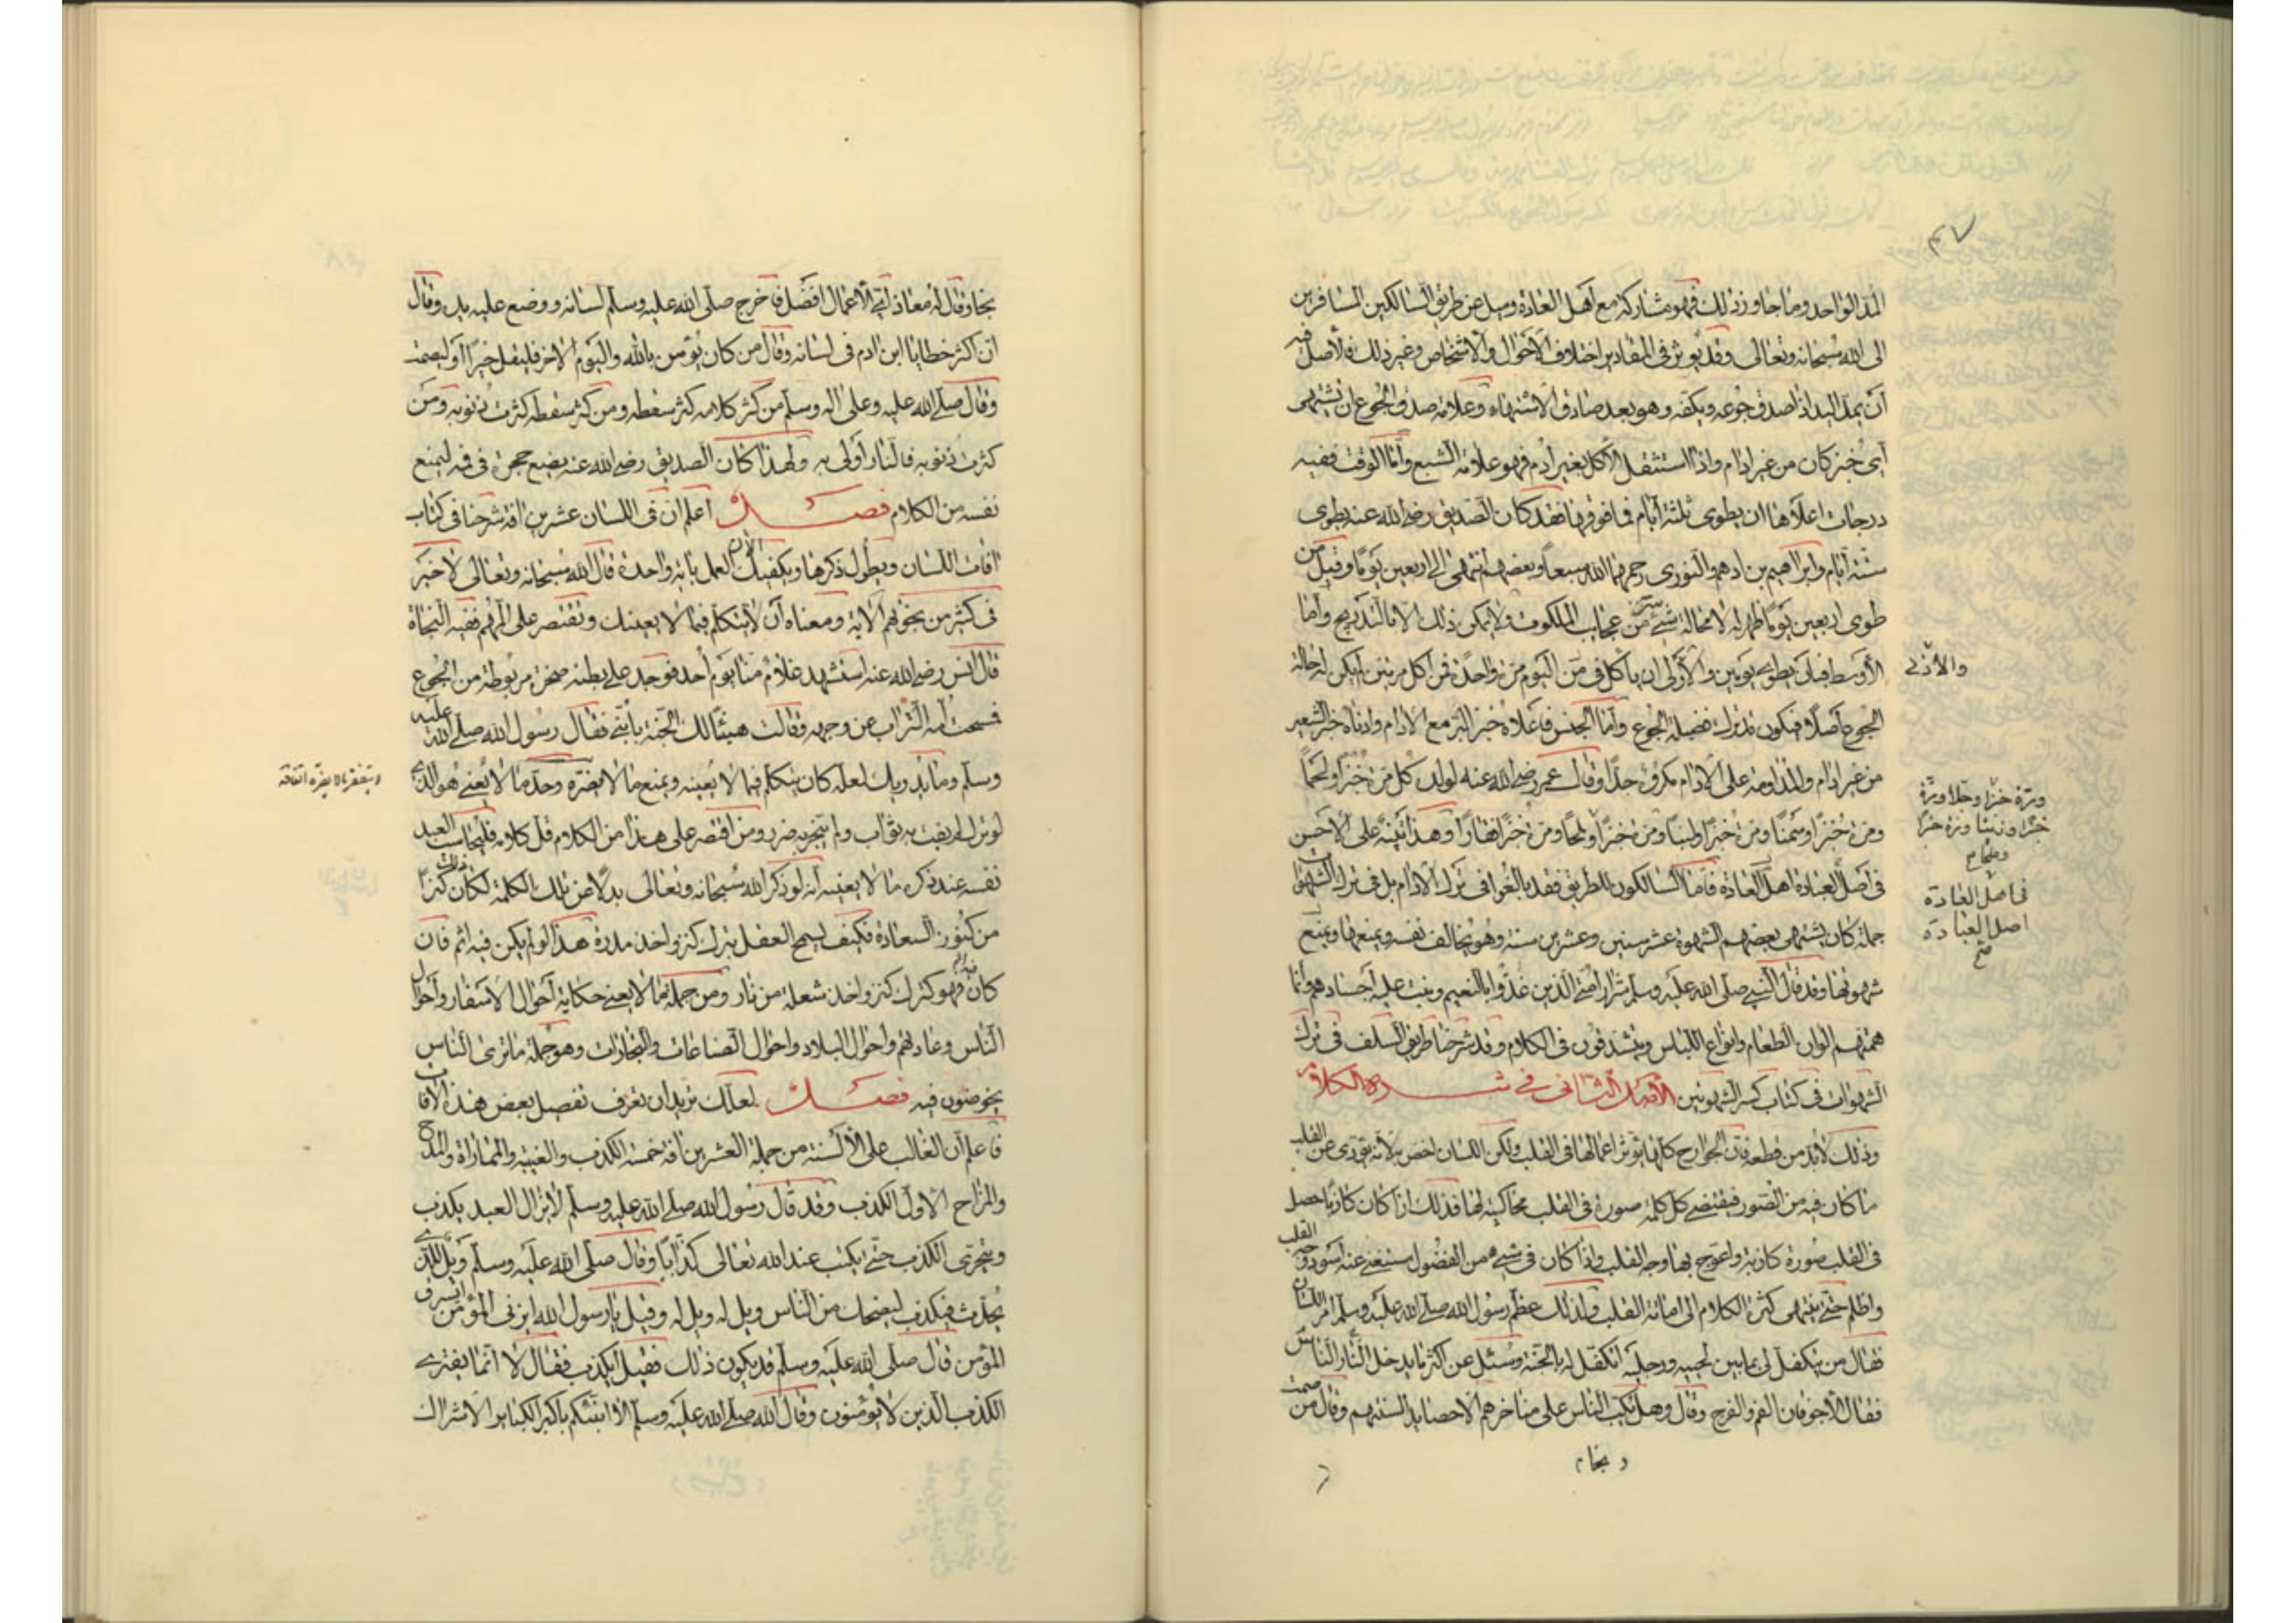 المد الواحد وما جاوز ذلك فهو مشاركة مع اهل العادة وميل عن طريق السالكين المسافرين
الى الله سبحانه وتعالى وقد يؤثر فى المقادير اختلاف الاحوال والاشخاص وغير ذلك فالأصل فيه
أن يمد اليد اذا صدق جوعه ويكفه وهو بعد صادق الاشتهاء وعلامة صدق الجوع ان يشتهى
أى خبز كان من غير ادام واذا استثقل الاكل بغير أدم فهو علامة الشبع وأما الوقت ففيه
درجات اعلاها ان يطوى ثلثة أيام فما فوقها فقد كان الصديق رضى الله عنه يطوى
ستة أيام وابراهيم بن ادهم والثورى رحمهما الله سبعاً وبعضهم انتهى الى اربعين يوماً وقيل من
طوى اربعين يوماً ظهر له لا محالة شئ من عجايب الملكوت ولا يمكن ذلك الا بالتدريج وأما
الأوسط فبأن يطوى يومين والأولى ان يأكل فى اليوم مرة واحدة فمن اكل مرتين لم يكن له حالة
الجوع أصلا فيكون قد ترك فضيلة الجوع وأما الجنس فأعلاه خبز البر مع الادام وادناه خبز الشعير
من غير ادام والمداومة على الادام مكروه جدا وقال عمر رضى الله عنه لولده كل مرة خبزا ولحماً
ومرة خبزاً وسمناً ومرة خبزاً ولبناً ومرة خبزاً وملحاً ومرة خبزاً قفاراً وهذا تنبيه على الاحسن
فى أصل العبادة اهل العادة فأما السالكون للطريق فقد بالغوا فى ترك الادام بل فى ترك الشهوات
جملة كان يشتهى بعضهم الشهوة عشر سنين وعشرين سنة وهو يخالف نفسه ويمنعها ويمنع
شهوتها وقد قال النبى صلى الله عليه وسلم شرار امتى الذين غذوا بالنعيم ونبت عليه أجسادهم وانما
همتهم الوان الطعام وانواع اللباس ويتشدقون فى الكلام وقد شرحنا طريق السلف فى ترك
الشهوات فى كتاب كسر الشهوتين الأصل الثانى فى شره الكلام
وذلك لابد من قطعه فان الجوارح كلها تؤثر اعمالها فى القلب ولكن اللسان اخص به لأنه يؤدى عن القلب
ما كان فيه من الصور فيقتضى كل كلمة صورة فى القلب محاكية لها فذلك اذا كان كاذبا حصل
فى القلب صورة كاذبة واعوج بها وجه القلب واذا كان فى شئ من الفضول مستغنى عنه اسود وجه القلب
واظلم حتى ينتهى كثرة الكلام الى اماتة القلب ولذلك عظم رسول الله صلى الله عليه وسلم امر اللسان
فقال من يتكفل لى بما بين لحييه ورجليه اتكفل له بالجنة وسئل عن اكثر ما يدخل النار الناس
فقال الأجوفان الفم والفرج وقال وهل يكب الناس على مناخرهم الا حصايد السنتهم وقال من صمت
والأدنى
ومرة خبزا وخلا ومرة
خبزا وزيتا ومرة خبزا
وملحا م
فى اصل العادة
اصل العبادة
صح
د نجا م
نجا وقال له معاذ أى الأعمال افضل فاخرج صلى الله عليه وسلم لسانه ووضع عليه يده وقال
ان اكثر خطايا ابن ادم فى لسانه وقال من كان يؤمن بالله واليوم الاخر فليقل خيراً أو ليصمت
وقال صلى الله عليه وعلى اله وسلم من كثر كلامه كثر سقطه ومن كثر سقطه كثرت ذنوبه ومن
كثرت ذنوبه فالنار أولى به ولهذا كان الصديق رضى الله عنه يضع حجرة فى فيه ليمنع
نفسه من الكلام فصل أعلم ان فى اللسان عشرين افة شرحنا فى كتاب
افات اللسان ويطول ذكرها ويكفيك الان العمل باية واحدة قال الله سبحانه وتعالى لا خير
فى كثير من نجويهم الاية ومعناه أن لا تتكلم فيما لا يعينك وتقتصر على المهم ففيه النجاة
قال انس رضى الله عنه استشهد غلام منا يوم أحد فوجد على بطنه صخرة مربوطة من الجوع
فمسحت أمه التراب عن وجهه وقالت هنيئا لك الجنة يا بنى فقال رسول الله صلى الله عليه
وسلم وما يدريك لعله كان يتكلم فيما لا يعينه ويمنع ما لا يضره وحد ما لا يعنى هو الذى
لو ترك لم يفت به ثواب ولم ينجز به ضرر ومن اقتصر على هذا من الكلام قل كلامه فليحاسب العبد
نفسه عند ذكره ما لا يعنيه أنه لو ذكر الله سبحانه وتعالى بدلا عن تلك الكلمة لكان ذلك كنزا
من كنوز السعادة فكيف يسمح العقل بترك كنز واخذ مدرة هذا لو لم يكن فيه اثم فان
كان فيه اثم فهو كترك كنز واخذ شعلة من نار ومن جملة ما لا يعنى حكاية أحوال الاسفار وأحوال
الناس وعاداتهم واحوال البلاد واحوال الصناعات والتجارات وهو جملة ما ترى الناس
يخوضون فيه فصل لعلك تريد ان تعرف تفصيل بعض هذه الآفات
فاعلم أن الغالب على الألسنة من جملة العشرين افة خمسة الكذب والغيبة والمماراة والمدح
والمزاح الاول الكذب وقد قال رسول الله صلى الله عليه وسلم لا يزال العبد يكذب
ويتحرى الكذب حتى يكتب عند الله تعالى كذابا وقال صلى الله عليه وسلم ويل للذى
يحدث فيكذب ليضحك من الناس ويل له ويل له وقيل يا رسول الله ايزنى المؤمن ايسرق
المؤمن قال صلى الله عليه وسلم قد يكون ذلك فقيل أيكذب فقال لا انما يفترى
الكذب الذين لا يؤمنون وقال الله صلى الله عليه وسلم الا انبئكم باكبر الكباير الاشراك